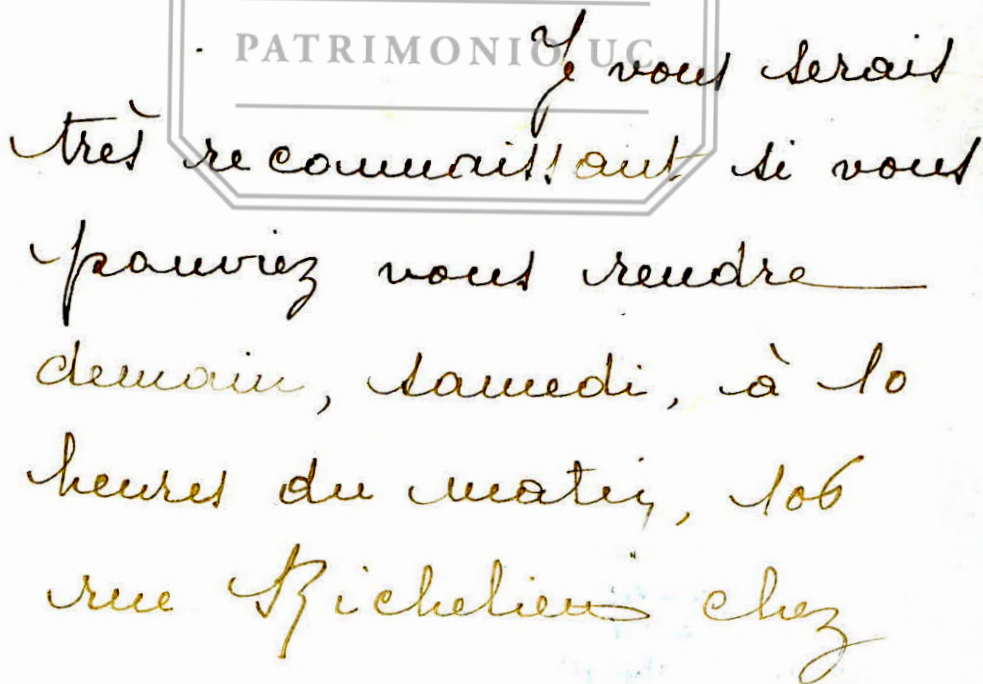 PATRIMONIO UC
Je vous serais
très reconnaissant si vous
pouviez vous rendre
demain, samedi, à 10
heures du matin, 106
rue Richelieu chez